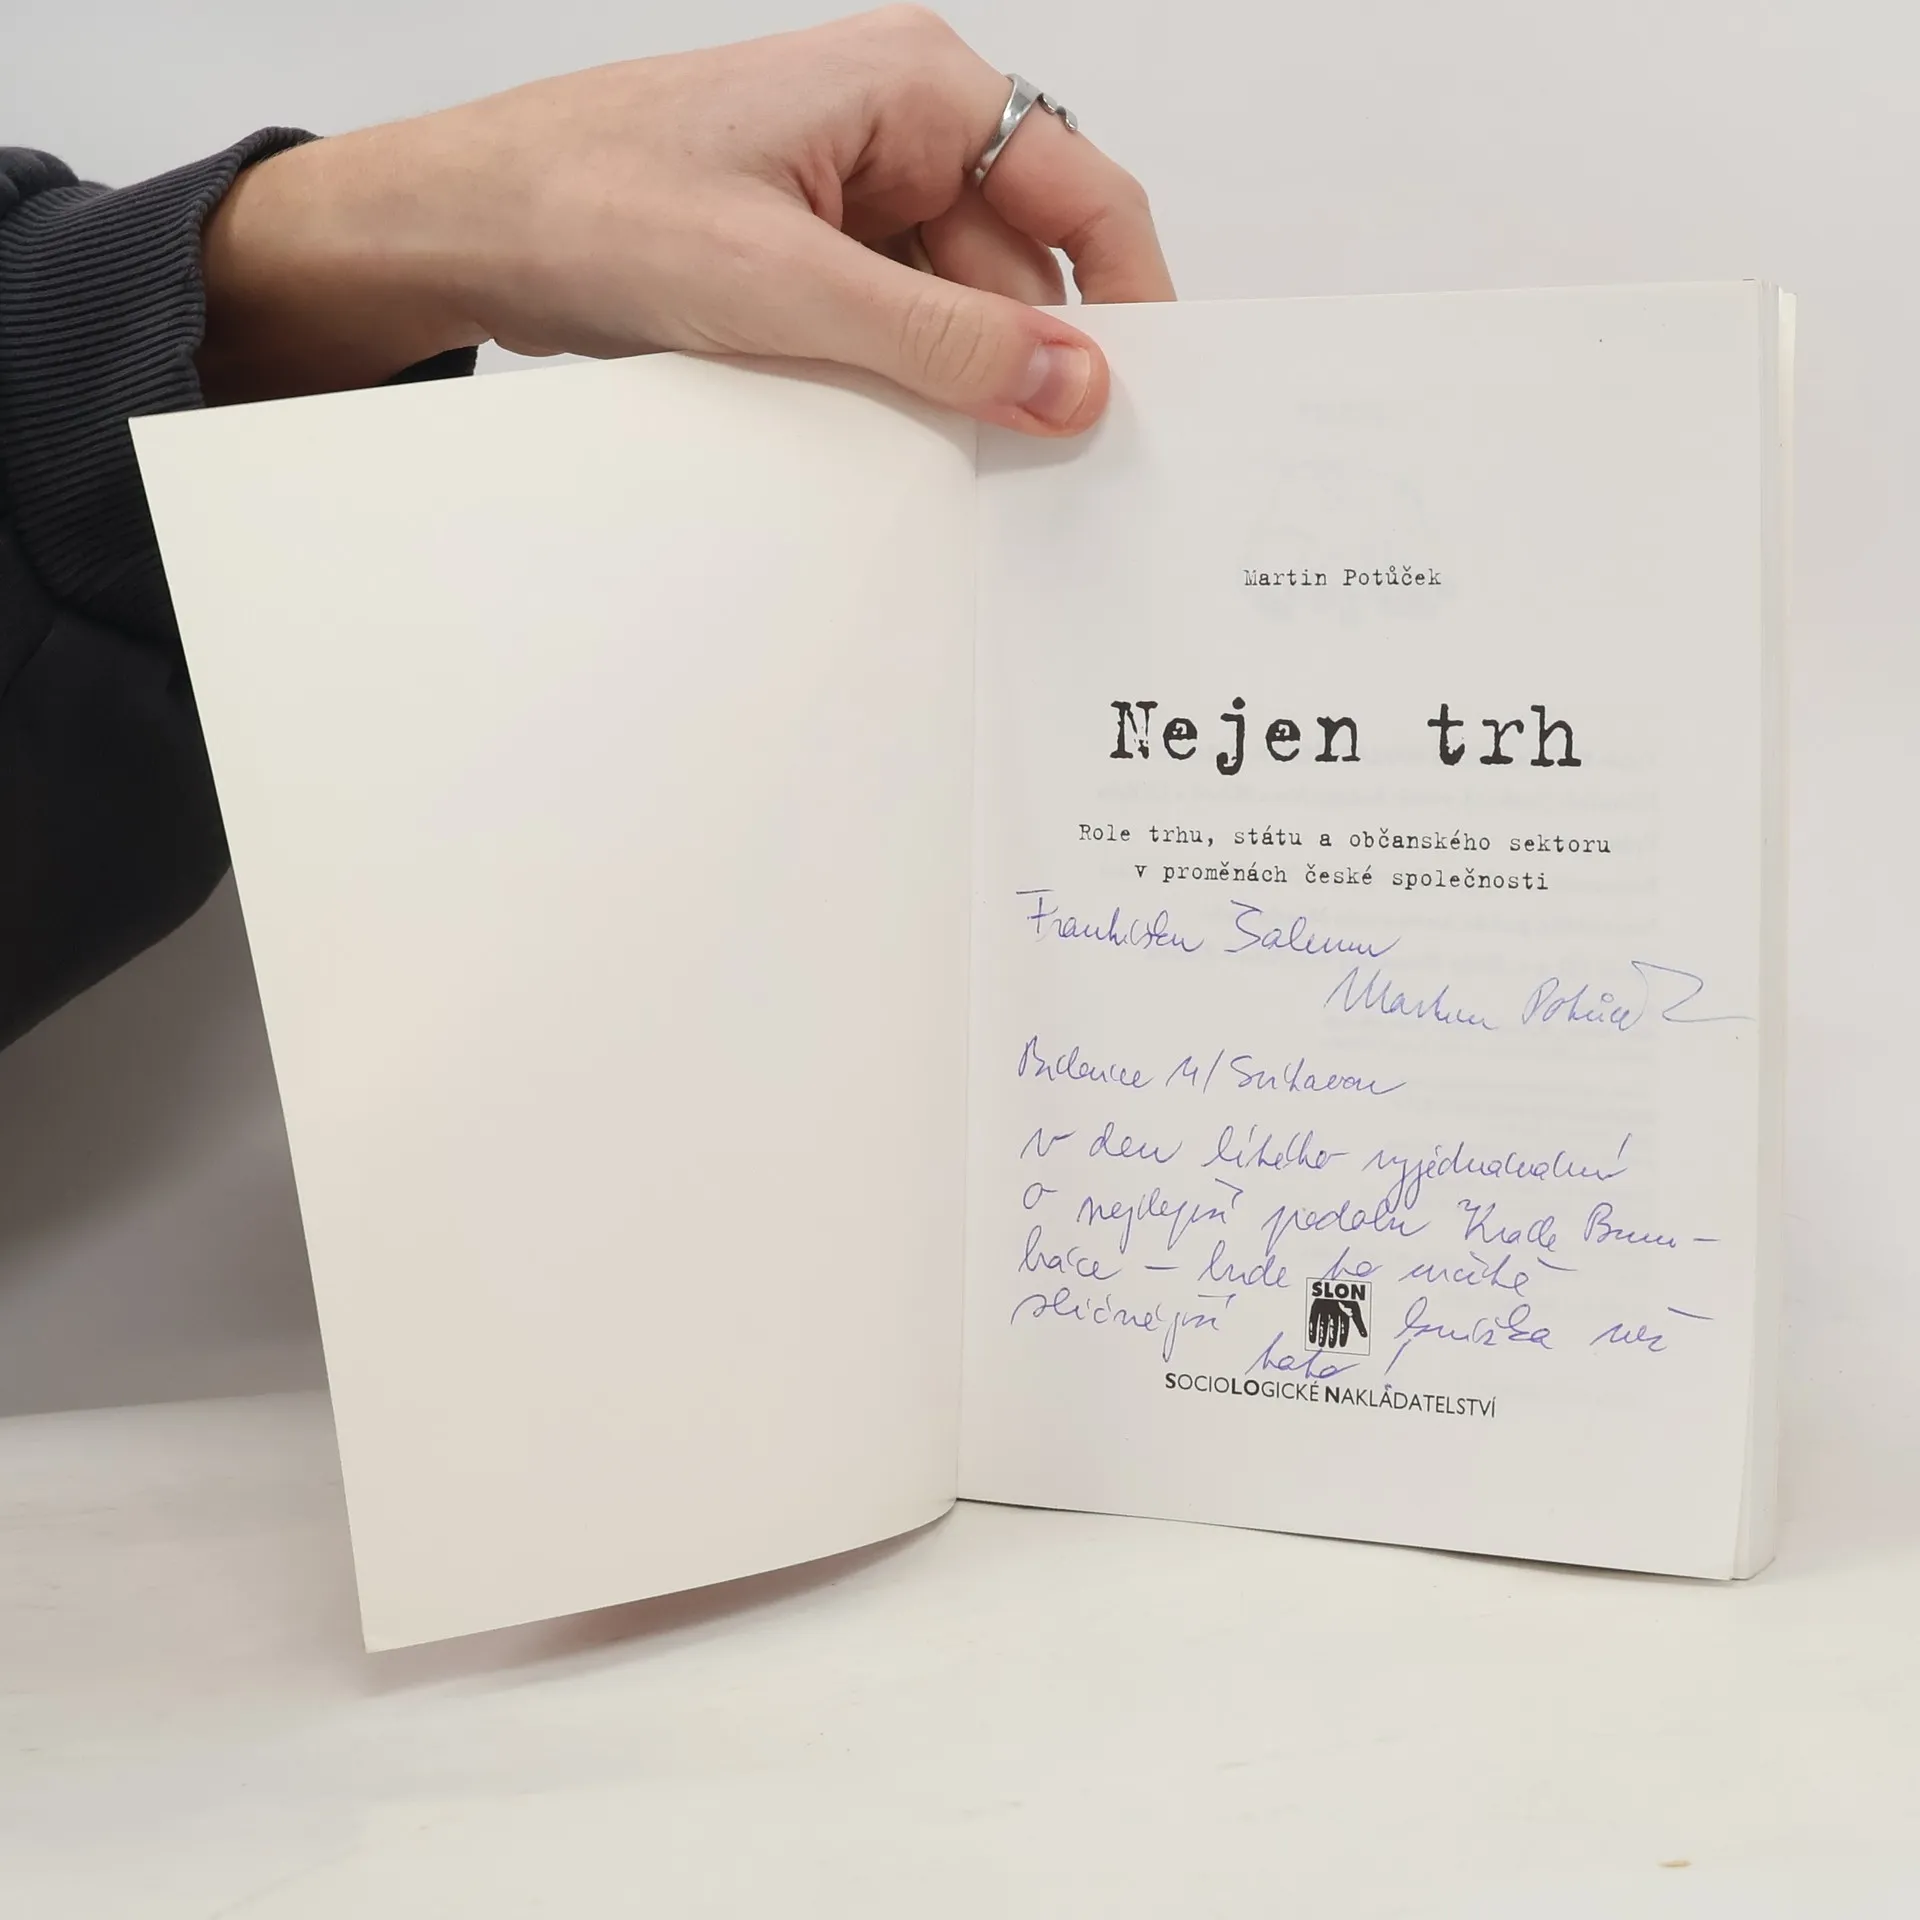 Martin Potůček
Nejen trh
Role trhu, státu a občanského sektoru
v proměnách české společnosti
Františku Šalemu
Martin Potůček
n/Svitavou
v den lítého vyjednávání
o nejlepší podobu
– bude to určitě
sličnější knížka než
SLON
tato!
SOCIOLOGICKÉ NAKLADATELSTVÍ